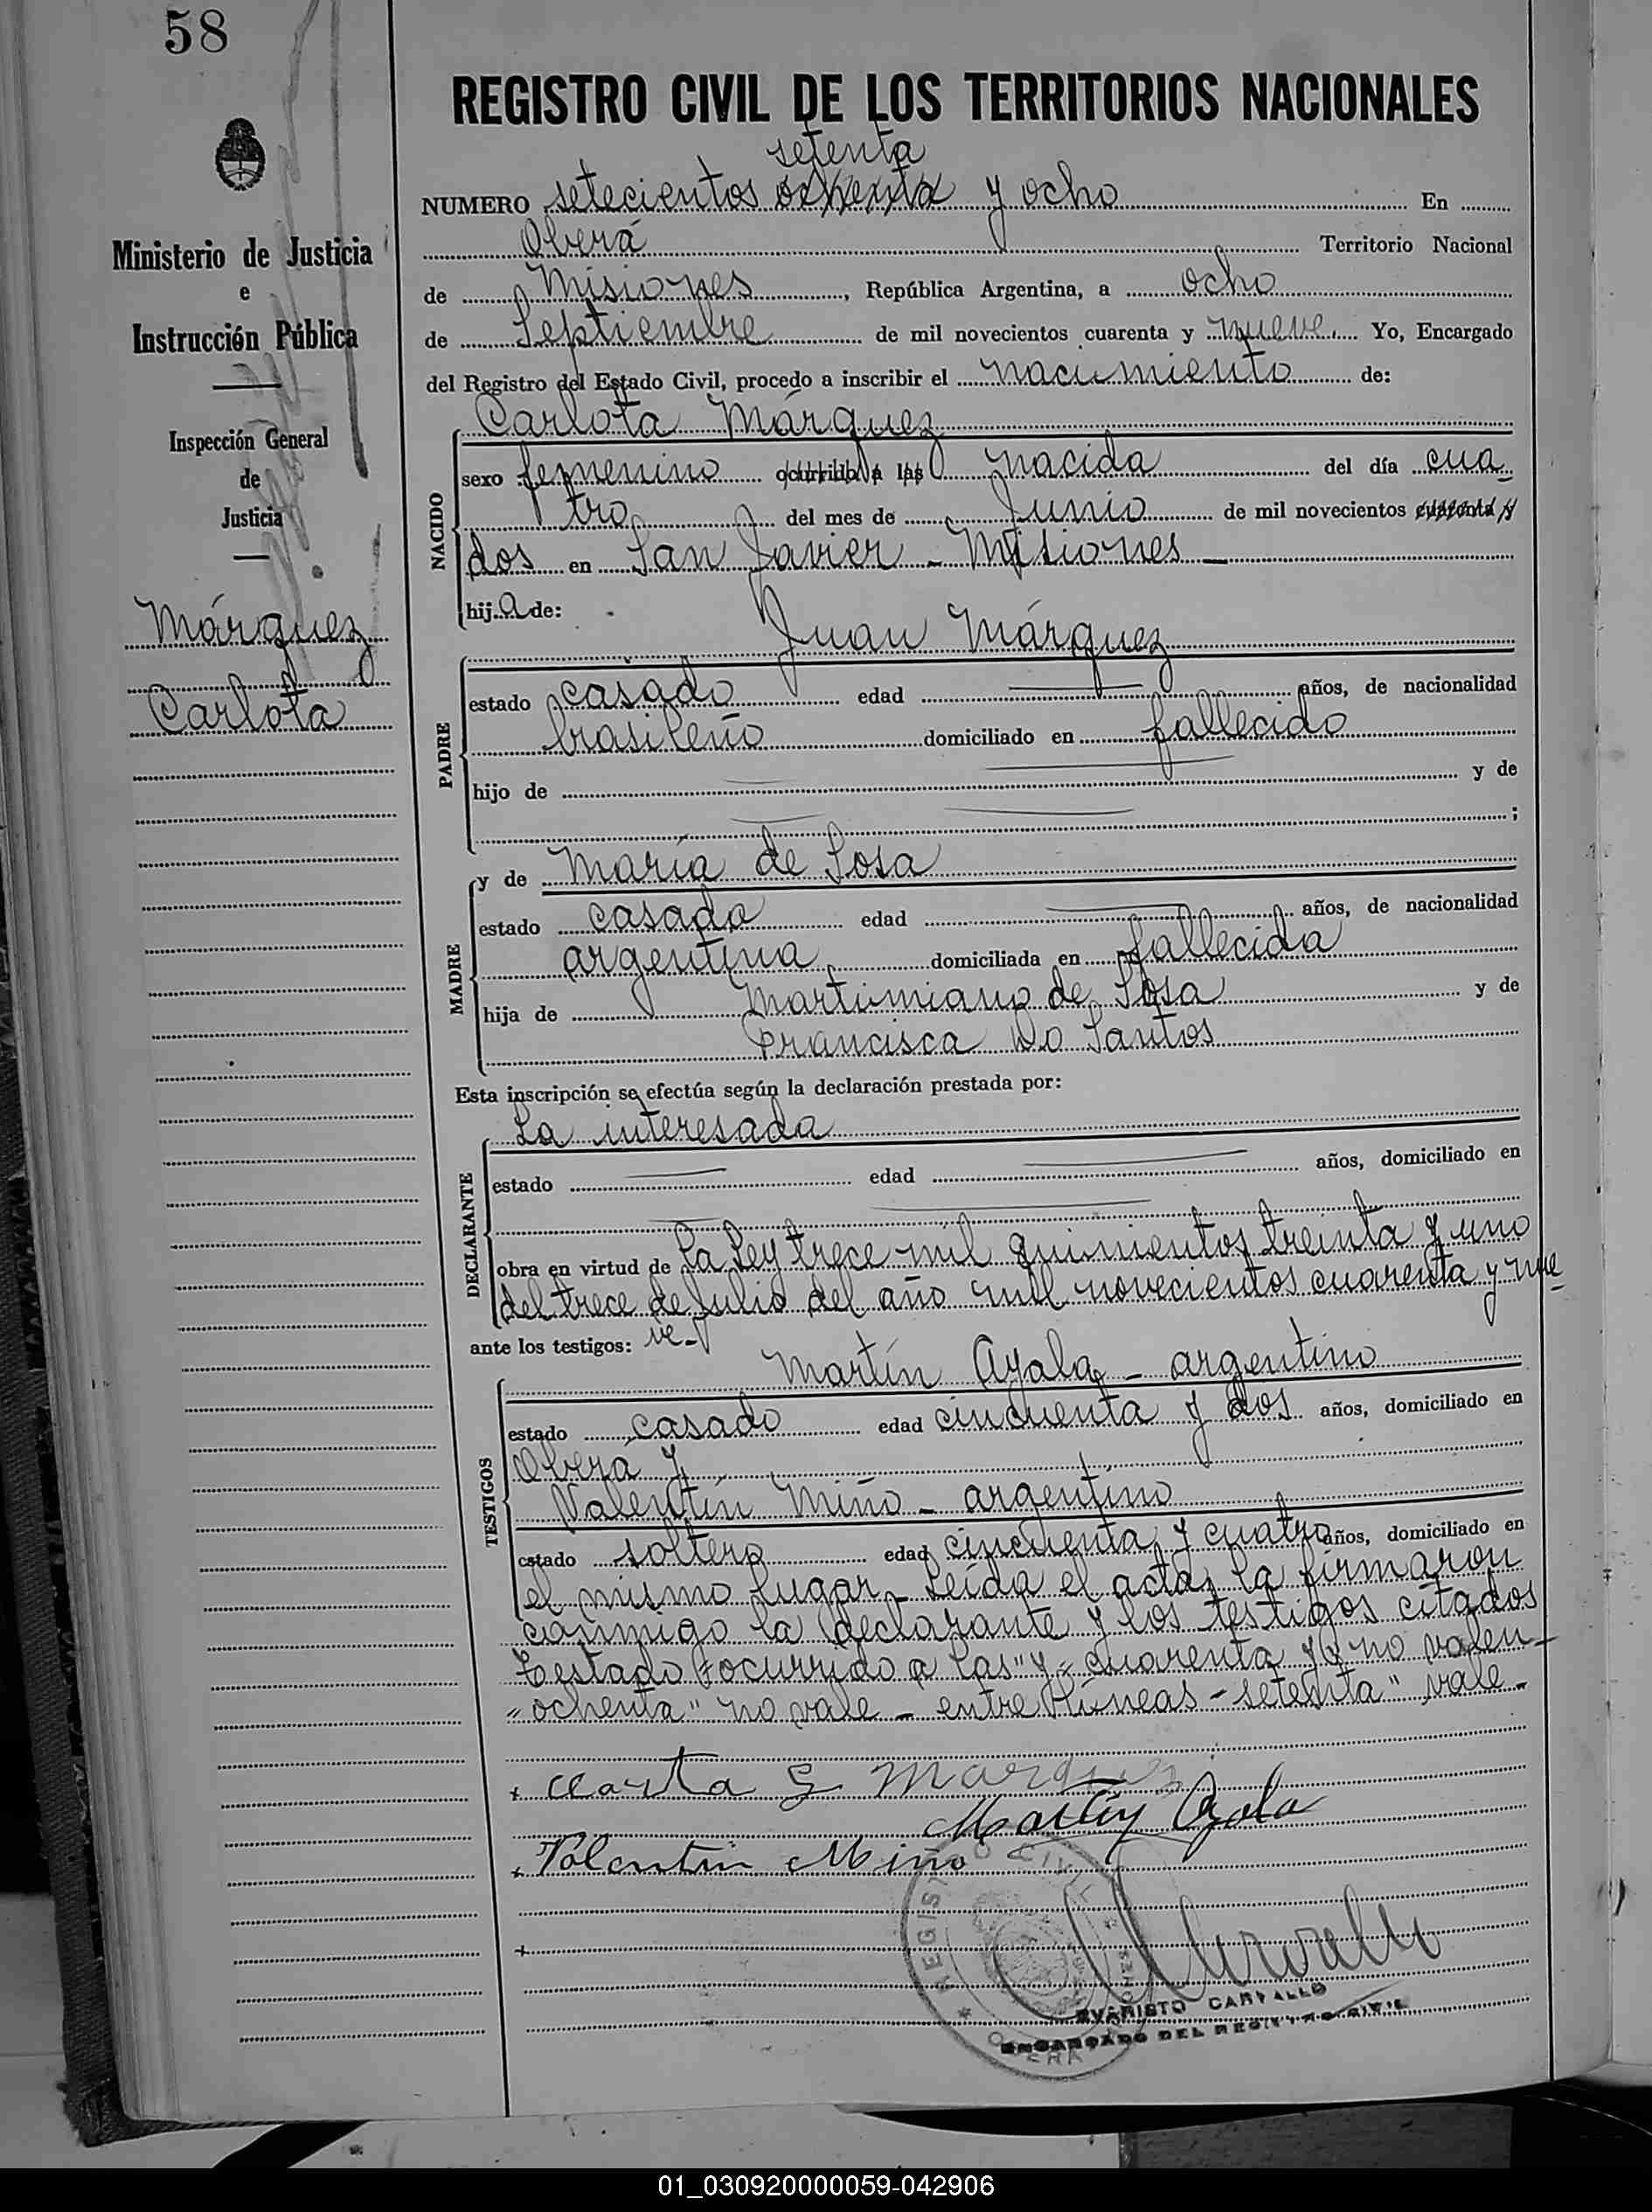 58
REGISTRO CIVIL DE LOS TERRITORIOS NACIONALES
setenta
NUMERO setecientos ochenta y ocho En
Oberá Territorio Nacional
de Misiones, República Argentina, a ocho
de Septiembre de mil novecientos cuarenta y nueve. Yo, Encargado
del Registro del Estado Civil, procedo a inscribir el nacimiento de:
Ministerio de Justicia
e
Instrucción Pública
Inspección General
de
Justicia
Márquez
Carlota
NACIDO
Carlota Márquez
sexo femenino ocurrido a las nacida del día cua
tro del mes de Junio de mil novecientos cuarenta y
dos en San Javier - Misiones
hija de:
PADRE
Juan Márquez
estado casado edad años, de nacionalidad
brasileño domiciliado en fallecido
hijo de y de
;
MADRE
y de María de Sosa
estado casada edad años, de nacionalidad
argentina domiciliada en fallecida
hija de Martimiano de Sosa y de
Francisca Do Santos
Esta inscripción se efectúa según la declaración prestada por:
DECLARANTE
La interesada
estado edad años, domiciliado en
obra en virtud de La Ley trece mil quinientos treinta y uno
del trece de Julio del año mil novecientos cuarenta y nue
ante los testigos: ve-
TESTIGOS
Martín Ayala - argentino
estado casado edad cincuenta y dos años, domiciliado en
Oberá y
Valentín Miño - argentino
estado soltero edad cincuenta y cuatro años, domiciliado en
el mismo lugar - Leída el acta, la firmaron
conmigo la declarante y los testigos citados
Testado "ocurrido a las" y "cuarenta y" no valen-
"ochenta" no vale - entre líneas - setenta" vale-
Marquez
Martin Ayala
Valentin Miño
REGISTRO CIVIL
OBERA
EVARISTO CARVALLO
ENCARGADO DEL REGISTRO CIVIL
01_030920000059-042906